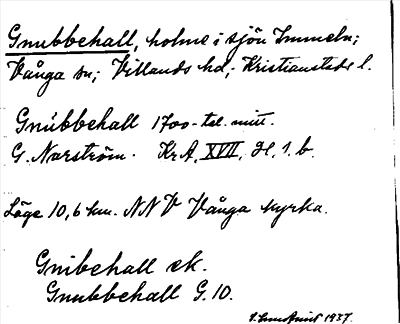 Gnubbehall, holme i sjön Immeln;
Vånga sn; Villands hd; Kristianstads l.
Gnubbehall 1700-tal. mitt.
G. Narström. Kr A, XVII, H. 1. b.
Läge 10,6 km. NNV Vånga kyrka.
Gnibehall ek.
Gnubbehall G. 10.
1937.